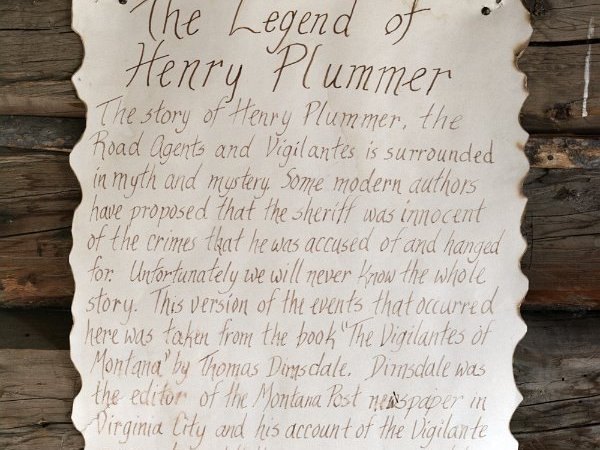 The Legend of
Henry Plummer
The story of Henry Plummer, the
Road Agents and Vigilantes is surrounded
in myth and mystery. Some modern authors
have proposed that the sheriff was innocent
of the crimes that he was accused of and hanged
for. Unfortunately we will never know the whole
story. This version of the events that occurred
here was taken from the book "The Vigilantes of
Montana" by Thomas Dimsdale. Dimsdale was
the editor of the Montana Post newspaper in
Virginia City and his account of the Vigilante